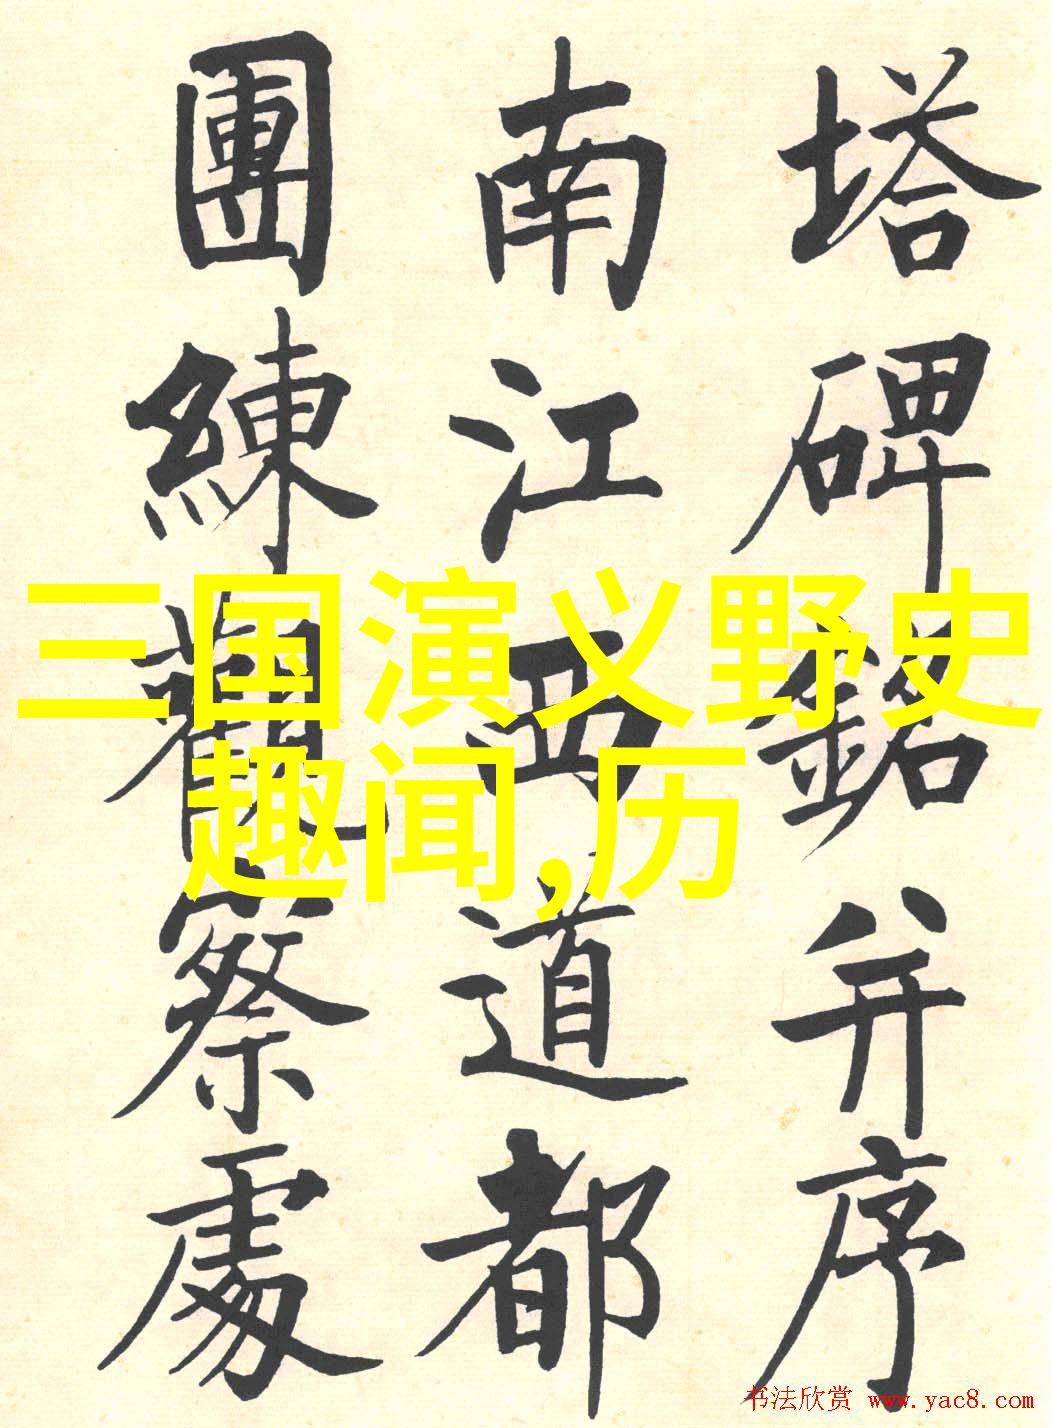 塔碑銘并序
南江西道都
團練觀察處
三国演义野史
趣闻,历
书法欣赏 www.yac8.com